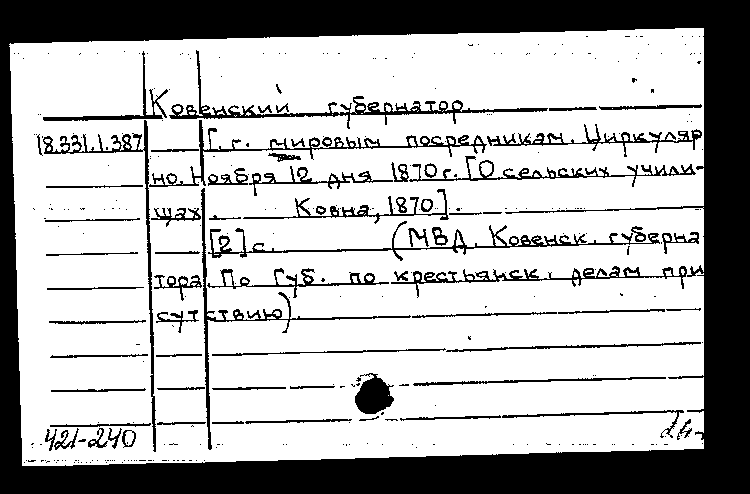 Ковенский губернатор.
18.331.1.387 Г.г. мировым посредникам. Циркуляр
но. Ноября 12 дня 1870 г. [О сельских учили-
щах. Ковна, 1870].
[2] с. (МВД. Ковенск. губерна
тора. По Губ. по крестьянск. делам при
сутствию).
421-240